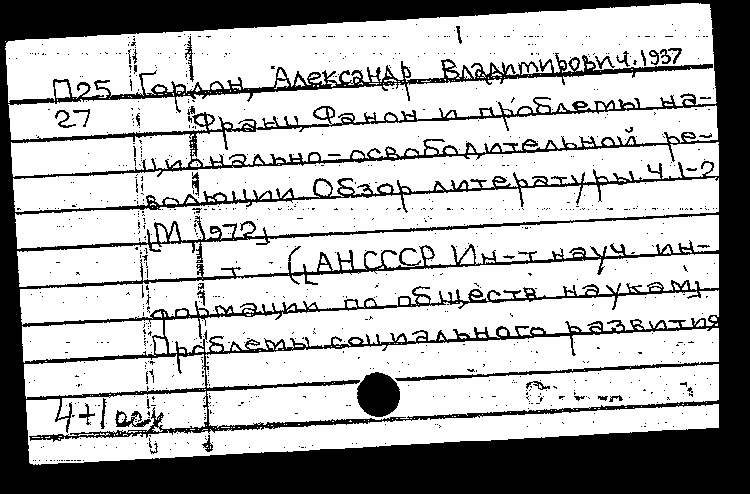 1
П25 Гордон, Александр Владимирович, 1937
27 Франц Фанон и проблемы на-
ционально-освободительной ре-
волюции Обзор литературы. Ч. 1-2
[М, 1972]
т ([АН СССР Ин-т науч. ин-
формации по обществ. наукам]
Проблемы социального развития
4+1